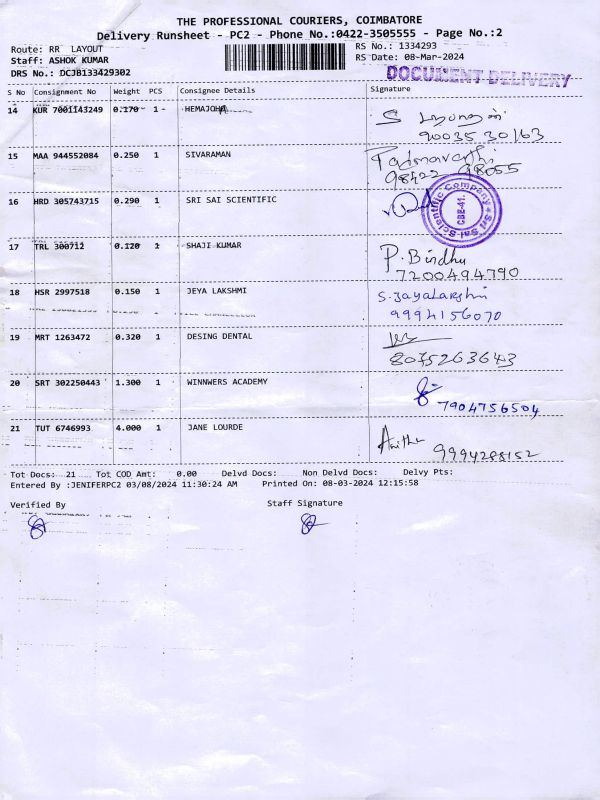 THE PROFESSIONAL COURIERS, COIMBATORE
Delivery Runsheet - PC2 - Phone No.:0422-3505555 - Page No.:2
Route: RR LAYOUT
RS No.: 1334293
Staff: ASHOK KUMAR
RS Date: 08-Mar-2024
DRS No.: DCJB133429302
DOCUMENT DELIVERY
S No Consignment No Weight PCS Consignee Details Signature
14 KUR 7001143249 0.170 1 HEMAJOHN
S
90035 30163
15 MAA 944552084 0.250 1 SIVARAMAN
Padmavathi
98422 98055
16 HRD 305743715 0.290 1 SRI SAI SCIENTIFIC
Sri Sai Scientific Company
CBE-41.
17 TRL 300712 0.120 1 SHAJI KUMAR
P. Bindhu
7200494790
18 HSR 2997518 0.150 1 JEYA LAKSHMI
S. Jayalakshmi
9994156070
19 MRT 1263472 0.320 1 DESING DENTAL
8075263643
20 SRT 302250443 1.300 1 WINNWERS ACADEMY
7904756504
21 TUT 6746993 4.000 1 JANE LOURDE
Anitha
9994288152
Tot Docs: 21 Tot COD Amt: 0.00 Delvd Docs: Non Delvd Docs: Delvy Pts:
Entered By :JENIFERPC2 03/08/2024 11:30:24 AM Printed On: 08-03-2024 12:15:58
Verified By Staff Signature